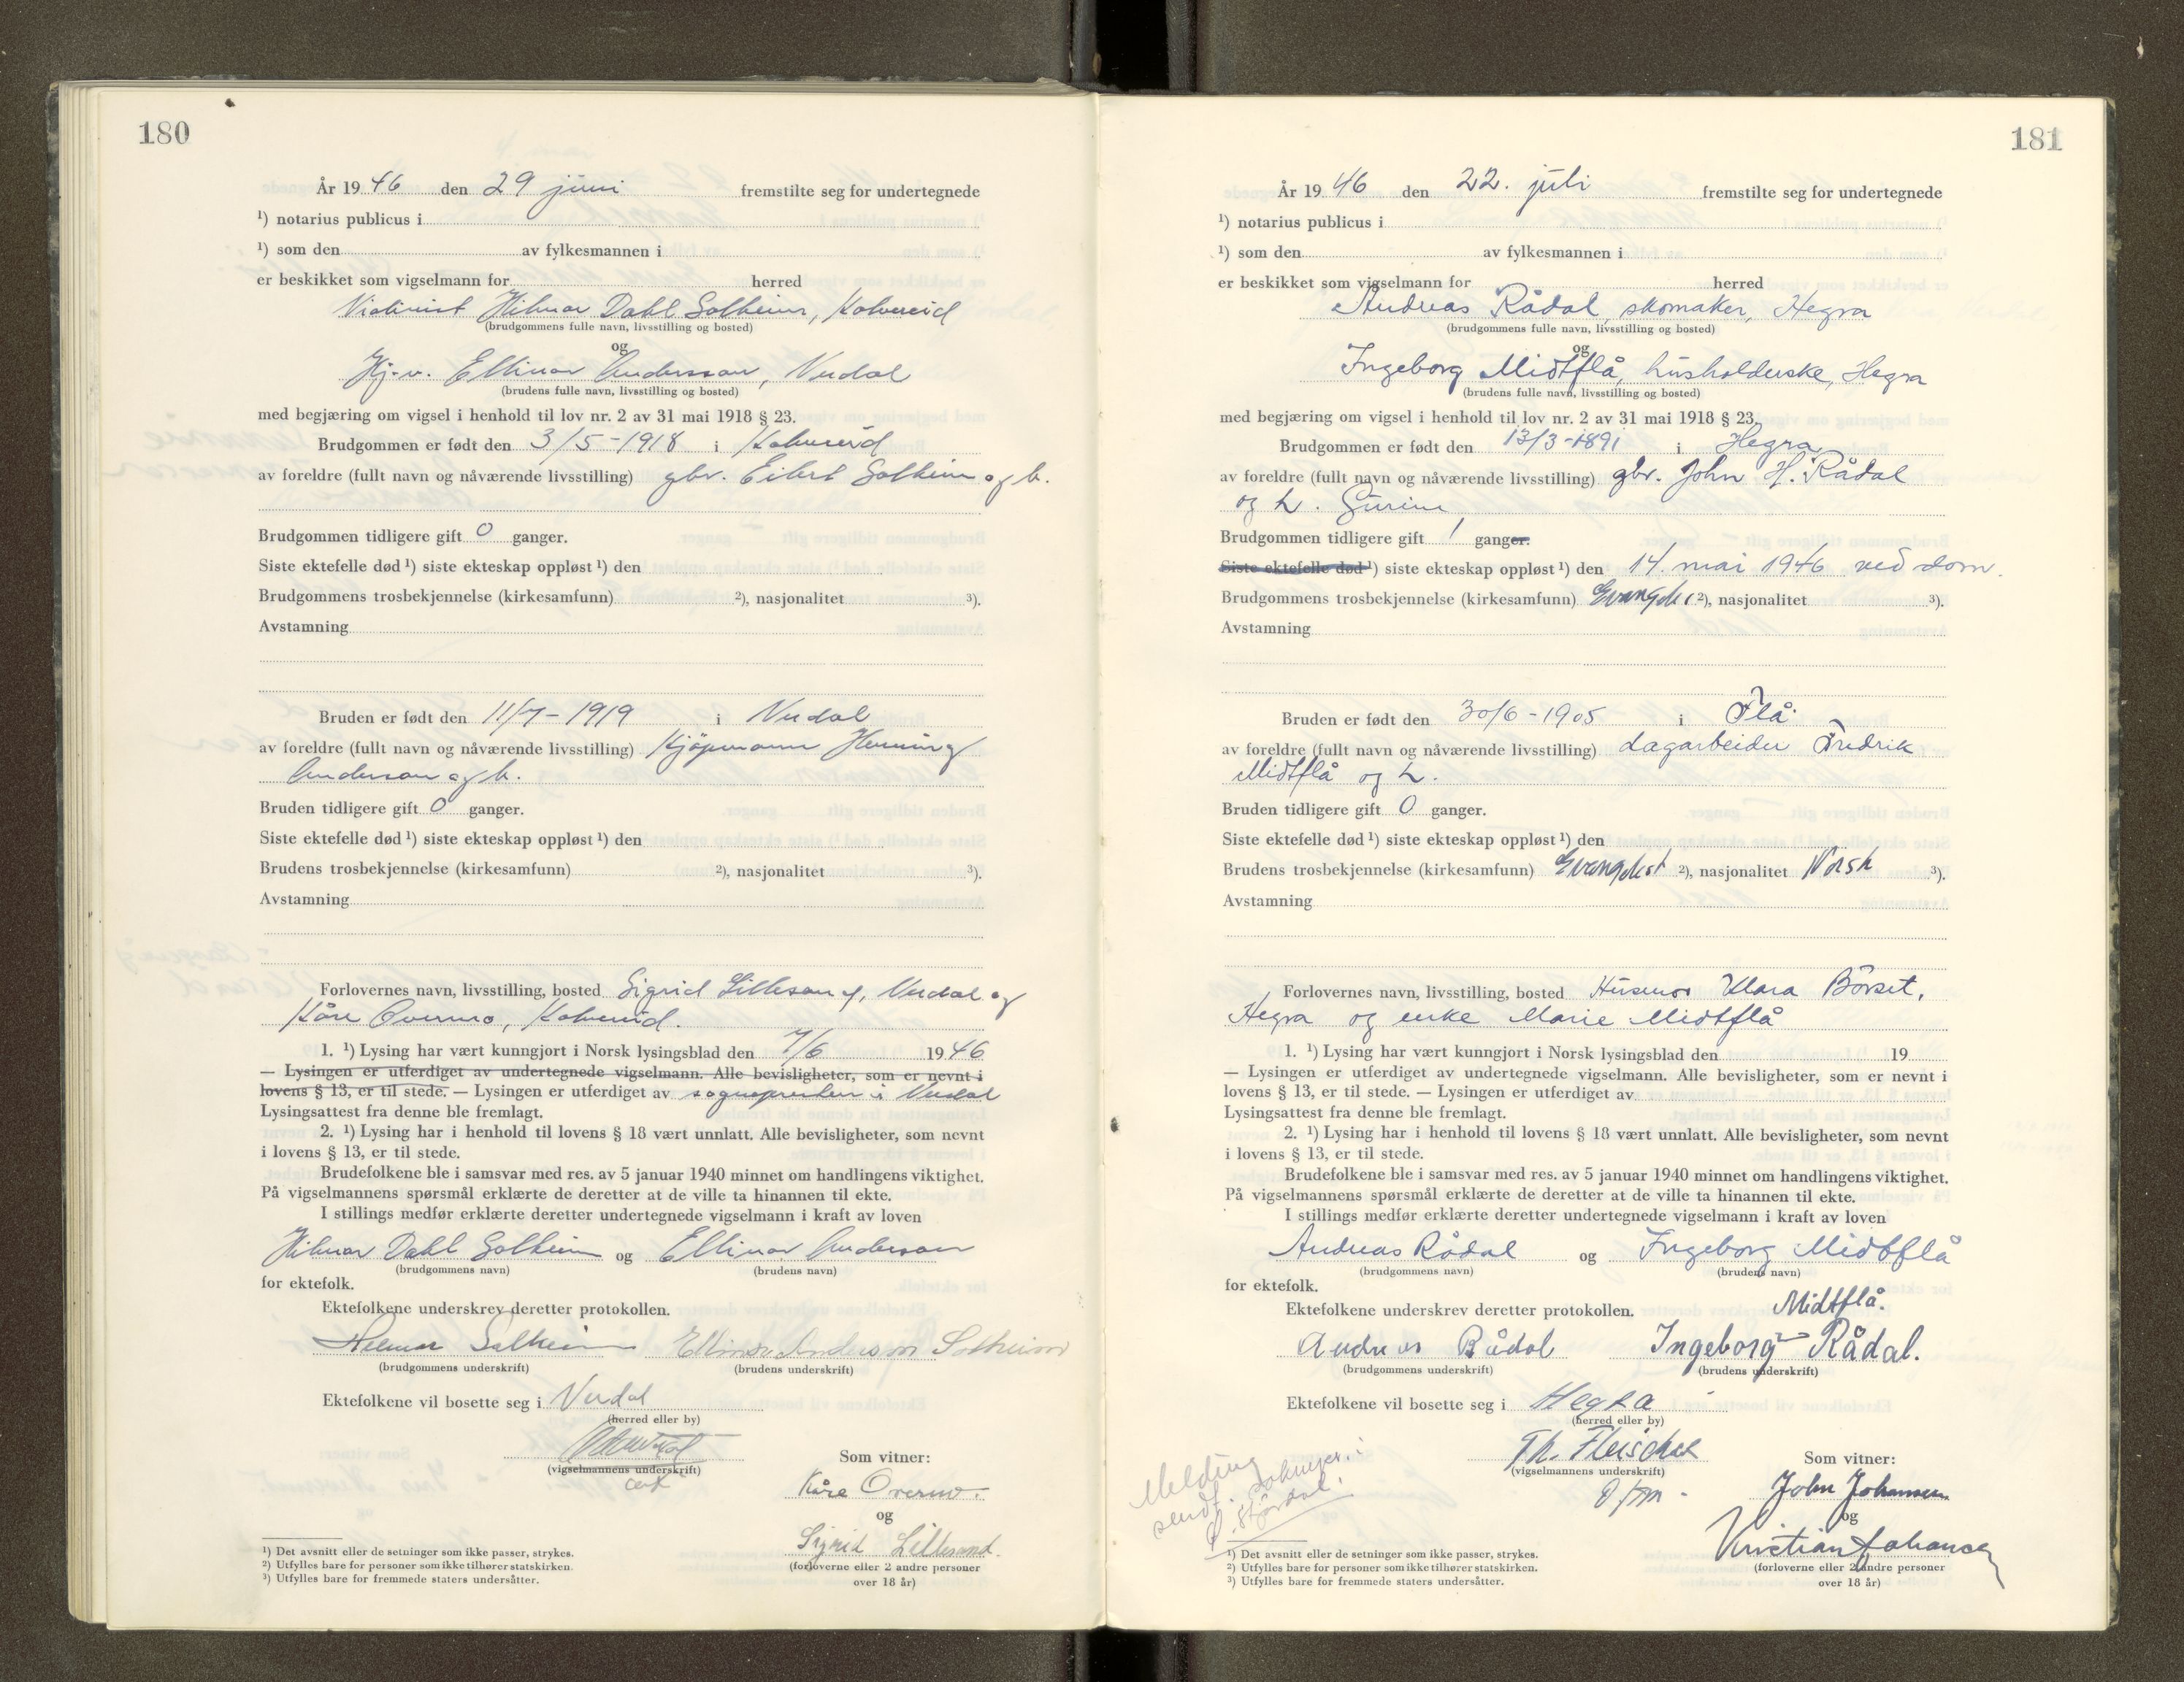 180
År 1946 den 29 juni fremstilte seg for undertegnede
¹) notarius publicus i
¹) som den av fylkesmannen i
er beskikket som vigselmann for herred
Hilmar Dahl Solheim, Kolvereid
(brudgommens fulle navn, livsstilling og bosted)
og
Hj.v. Ellinor Anderssen, Verdal
(brudens fulle navn, livsstilling og bosted)
med begjæring om vigsel i henhold til lov nr. 2 av 31 mai 1918 § 23.
Brudgommen er født den 3/5-1918 i Kolvereid
av foreldre (fullt navn og nåværende livsstilling) gbr. Eilert Solheim og h.
Brudgommen tidligere gift 0 ganger.
Siste ektefelle død ¹) siste ekteskap oppløst ¹) den
Brudgommens trosbekjennelse (kirkesamfunn) ²), nasjonalitet ³).
Avstamning
Bruden er født den 11/7-1919 i Verdal
av foreldre (fullt navn og nåværende livsstilling) Kjøpmann Henning
Anderson og h.
Bruden tidligere gift 0 ganger.
Siste ektefelle død ¹) siste ekteskap oppløst ¹) den
Brudens trosbekjennelse (kirkesamfunn) ²), nasjonalitet ³).
Avstamning
Forlovernes navn, livsstilling, bosted Sigrid Lillesand, Verdal og
Kåre Overmo, Kolvereid.
1. ¹) Lysing har vært kunngjort i Norsk lysingsblad den 7/6 1946
— Lysingen er utferdiget av undertegnede vigselmann. Alle bevisligheter, som er nevnt i
lovens § 13, er til stede. — Lysingen er utferdiget av sognepresten i Verdal
Lysingsattest fra denne ble fremlagt.
2. ¹) Lysing har i henhold til lovens § 18 vært unnlatt. Alle bevisligheter, som nevnt
i lovens § 13, er til stede.
Brudefolkene ble i samsvar med res. av 5 januar 1940 minnet om handlingens viktighet.
På vigselmannens spørsmål erklærte de deretter at de ville ta hinannen til ekte.
I stillings medfør erklærte deretter undertegnede vigselmann i kraft av loven
Hilmar Dahl Solheim og Ellinor Anderson
(brudgommens navn) (brudens navn)
for ektefolk.
Ektefolkene underskrev deretter protokollen.
Hilmar Solheim Ellinor Anderson Solheim
(brudgommens underskrift) (brudens underskrift)
Ektefolkene vil bosette seg i Verdal
(herred eller by)
(vigselmannens underskrift)
Som vitner:
Kåre Overmo.
og
Sigrid Lillesand.
(forloverne eller 2 andre personer
over 18 år)
¹) Det avsnitt eller de setninger som ikke passer, strykes.
²) Utfylles bare for personer som ikke tilhører statskirken.
³) Utfylles bare for fremmede staters undersåtter.
181
År 1946 den 22. juli fremstilte seg for undertegnede
¹) notarius publicus i
¹) som den av fylkesmannen i
er beskikket som vigselmann for herred
Andreas Rådal, skomaker, Hegra
(brudgommens fulle navn, livsstilling og bosted)
og
Ingeborg Midtflå, husholderske, Hegra
(brudens fulle navn, livsstilling og bosted)
med begjæring om vigsel i henhold til lov nr. 2 av 31 mai 1918 § 23.
Brudgommen er født den 13/3-1891 i Hegra
av foreldre (fullt navn og nåværende livsstilling) gbr. John H. Rådal
og h. Gurine
Brudgommen tidligere gift 1 ganger.
Siste ektefelle død ¹) siste ekteskap oppløst ¹) den 14. mai 1946 ved dom.
Brudgommens trosbekjennelse (kirkesamfunn) ²), nasjonalitet ³).
Avstamning
Bruden er født den 30/6-1905 i Flå
av foreldre (fullt navn og nåværende livsstilling) dagarbeider Fredrik
Midtflå og h.
Bruden tidligere gift 0 ganger.
Siste ektefelle død ¹) siste ekteskap oppløst ¹) den
Brudens trosbekjennelse (kirkesamfunn) Evangelist ²), nasjonalitet Norsk ³).
Avstamning
Forlovernes navn, livsstilling, bosted Husmor Klara Börset,
Hegra og enke Marie Midtflå
1. ¹) Lysing har vært kunngjort i Norsk lysingsblad den 19
— Lysingen er utferdiget av undertegnede vigselmann. Alle bevisligheter, som er nevnt i
lovens § 13, er til stede. — Lysingen er utferdiget av
Lysingsattest fra denne ble fremlagt.
2. ¹) Lysing har i henhold til lovens § 18 vært unnlatt. Alle bevisligheter, som nevnt
i lovens § 13, er til stede.
Brudefolkene ble i samsvar med res. av 5 januar 1940 minnet om handlingens viktighet.
På vigselmannens spørsmål erklærte de deretter at de ville ta hinannen til ekte.
I stillings medfør erklærte deretter undertegnede vigselmann i kraft av loven
Andreas Rådal og Ingeborg Midtflå
(brudgommens navn) (brudens navn)
for ektefolk.
Ektefolkene underskrev deretter protokollen. Midtflå.
Andreas Rådal Ingeborg Rådal.
(brudgommens underskrift) (brudens underskrift)
Ektefolkene vil bosette seg i Hegra
(herred eller by)
Th. Fleischer
(vigselmannens underskrift)
Som vitner:
John Johansen
og
Kristian Johansen
(forloverne eller 2 andre personer
over 18 år)
Melding
sendt sokneprest i
Stjørdal.
¹) Det avsnitt eller de setninger som ikke passer, strykes.
²) Utfylles bare for personer som ikke tilhører statskirken.
³) Utfylles bare for fremmede staters undersåtter.